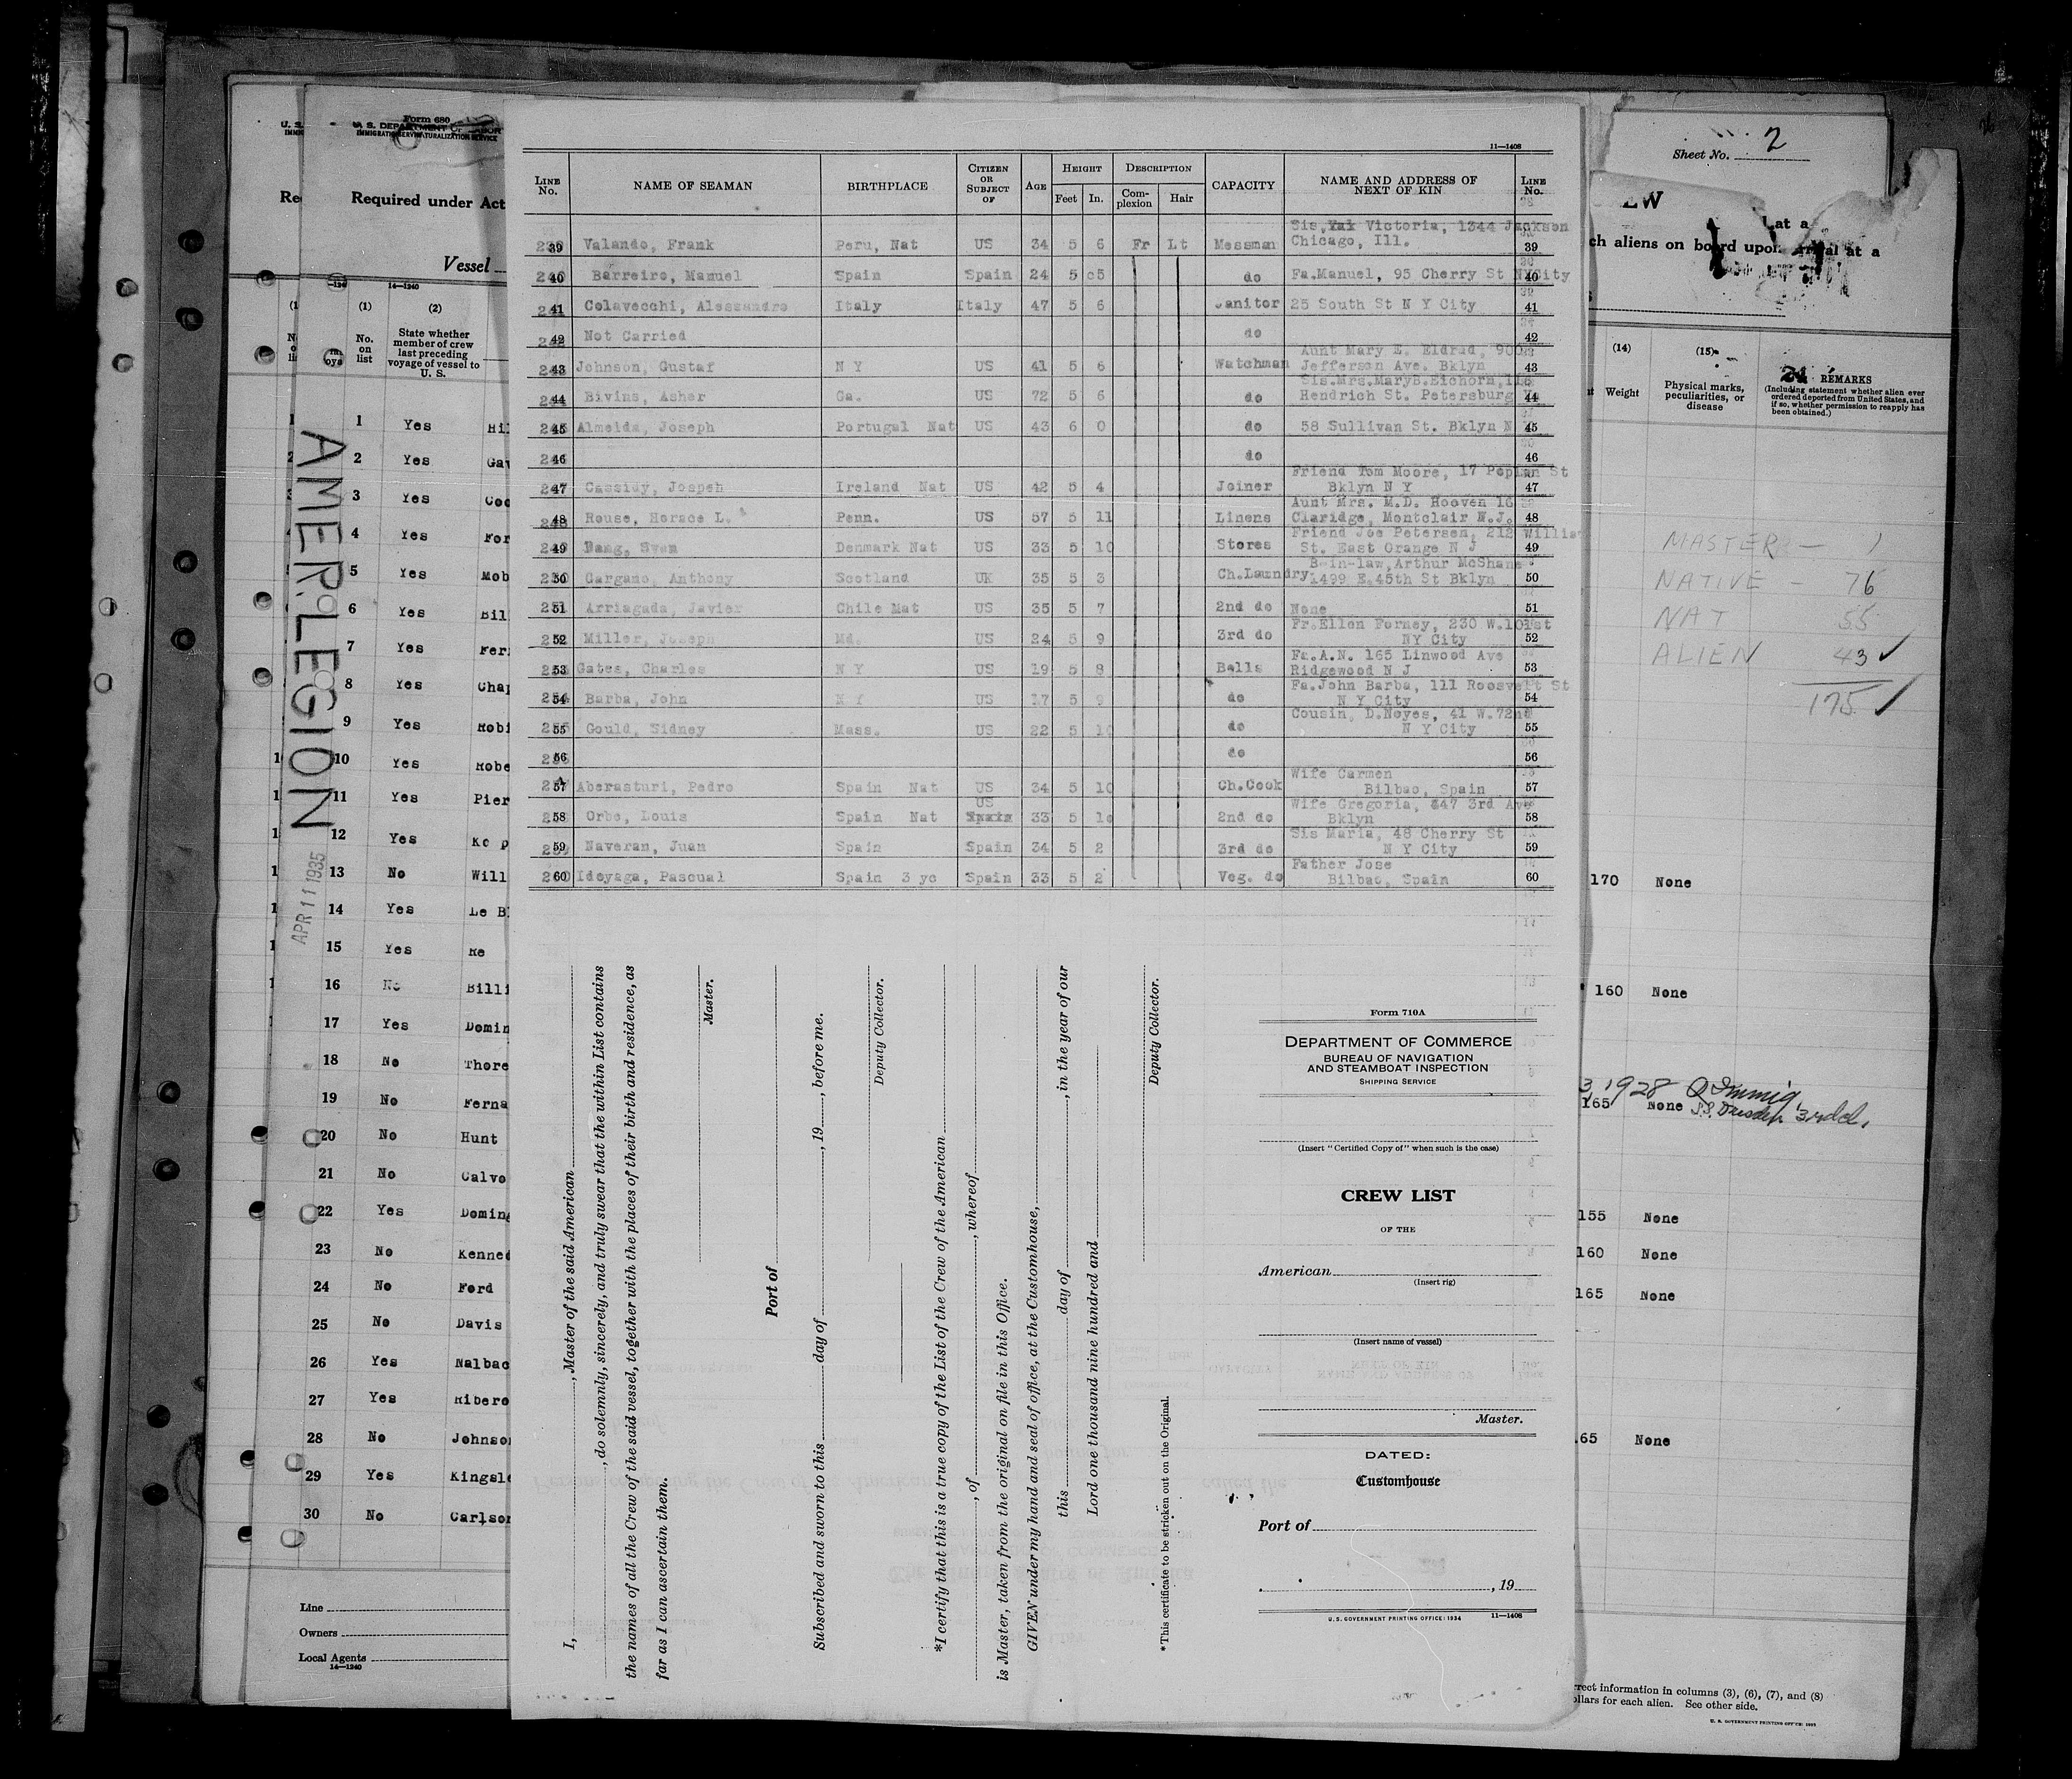 11—1408
LINE No. NAME OF SEAMAN BIRTHPLACE CITIZEN OR SUBJECT OF AGE HEIGHT Feet In. DESCRIPTION Complexion Hair CAPACITY NAME AND ADDRESS OF NEXT OF KIN LINE No.
39 Valando, Frank Peru, Nat US 34 5 6 Fr Lt Messman Sis, Victoria, 1344 Jackson Chicago, Ill. 39
40 Barreiro, Manuel Spain Spain 24 5 5 do Fa.Manuel, 95 Cherry St NYCity 40
41 Colavecchi, Alessandro Italy Italy 47 5 6 Janitor 25 South St N Y City 41
42 Not Carried do 42
43 Johnson, Gustaf N Y US 41 5 6 Watchman Aunt Mary E. Eldrad, Jefferson Ave. Bklyn 43
44 Bivins, Asher Ga. US 72 5 6 do Sis.Mrs.MaryB.Eichorn, Hendrich St. Petersburg 44
45 Almeida, Joseph Portugal Nat US 43 6 0 do 58 Sullivan St. Bklyn N 45
46 do 46
47 Cassidy, Jospeh Ireland Nat US 42 5 4 Joiner Friend Tom Moore, 17 Poplar St Bklyn N Y 47
48 Rouse, Horace L. Penn. US 57 5 11 Linens Aunt Mrs. M.D. Hooven 16 Claridge, Montclair N.J. 48
49 Bang, Sven Denmark Nat US 33 5 10 Stores Friend Joe Petersen, 212 William St. East Orange N J 49
50 Gargano, Anthony Scotland UK 35 5 3 Ch.Laundry B-in-law, Arthur McShane 1499 E.45th St Bklyn 50
51 Arriagada, Javier Chile Nat US 35 5 7 2nd do None 51
52 Miller, Joseph Md. US 24 5 9 3rd do Fr.Ellen Forney, 230 W.101st NY City 52
53 Gates, Charles N Y US 19 5 8 Bells Fa.A.N. 165 Linwood Ave Ridgewood N J 53
54 Barba, John N Y US 17 5 9 do Fa.John Barba, 111 Roosvelt St N Y City 54
55 Gould, Sidney Mass. US 22 5 10 do Cousin, D.Noyes, 41 W.72nd N Y City 55
56 do 56
57 Aberasturi, Pedro Spain Nat US 34 5 10 Ch.Cook Wife Carmen Bilbao, Spain 57
58 Orbe, Louis Spain Nat US Spain 33 5 10 2nd do Wife Gregoria, 447 3rd Ave Bklyn 58
59 Naveran, Juan Spain Spain 34 5 2 3rd do Sis Maria, 48 Cherry St N Y City 59
60 Idoyaga, Pascual Spain 3 yc Spain 33 5 2 Veg. do Father Jose Bilbao, Spain 60
I, , Master of the said American
, do solemnly, sincerely, and truly swear that the within List contains
the names of all the Crew of the said vessel, together with the places of their birth and residence, as
far as I can ascertain them.
Master.
Port of
Subscribed and sworn to this day of , 19 , before me.
Deputy Collector.
*I certify that this is a true copy of the List of the Crew of the American
, of , whereof
is Master, taken from the original on file in this Office.
GIVEN under my hand and seal of office, at the Customhouse,
this day of , in the year of our
Lord one thousand nine hundred and
Deputy Collector.
*This certificate to be stricken out on the Original.
Form 710A
DEPARTMENT OF COMMERCE
BUREAU OF NAVIGATION
AND STEAMBOAT INSPECTION
SHIPPING SERVICE
(Insert "Certified Copy of" when such is the case)
CREW LIST
OF THE
American
(Insert rig)
(Insert name of vessel)
Master.
DATED:
Customhouse
Port of
, 19
U. S. GOVERNMENT PRINTING OFFICE: 1934 11—1408
Form 680
U. S. DEPARTMENT OF LABOR
Required under Act
Vessel
14—1240
(1) (2)
No. on list
State whether member of crew last preceding voyage of vessel to U. S.
AMER. LEGION
APR 11 1935
1 Yes Hil
2 Yes Gav
3 Yes Coo
4 Yes For
5 Yes Mob
6 Yes Bil
7 Yes Fer
8 Yes Chap
9 Yes Robi
10 Yes Robe
11 Yes Pier
12 Yes
13 No Will
14 Yes Le B
15 Yes Re
16 No Billi
17 Yes Domin
18 No Thore
19 No Ferna
20 No Hunt
21 No Calvo
22 Yes Doming
23 No Kenned
24 No Ford
25 No Davis
26 Yes Nalbac
27 Yes Ribero
28 No Johnso
29 Yes Kingsle
30 No Carlson
Line
Owners
Local Agents
14—1240
Sheet No. 2
EW
at a
ch aliens on board upon arrival at a
(14) (15)
Weight
Physical marks, peculiarities, or disease
REMARKS
(Including statement whether alien ever ordered deported from United States, and if so, whether permission to reapply has been obtained.)
MASTER — 1
NATIVE - 76
NAT 55
ALIEN 43 ✓
175 ✓
170 None
160 None
3, 1928
165 None
155 None
160 None
165 None
65 None
rrect information in columns (3), (6), (7), and (8)
ollars for each alien. See other side.